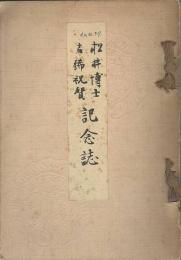 松井博士
古稀祝賀
記念誌